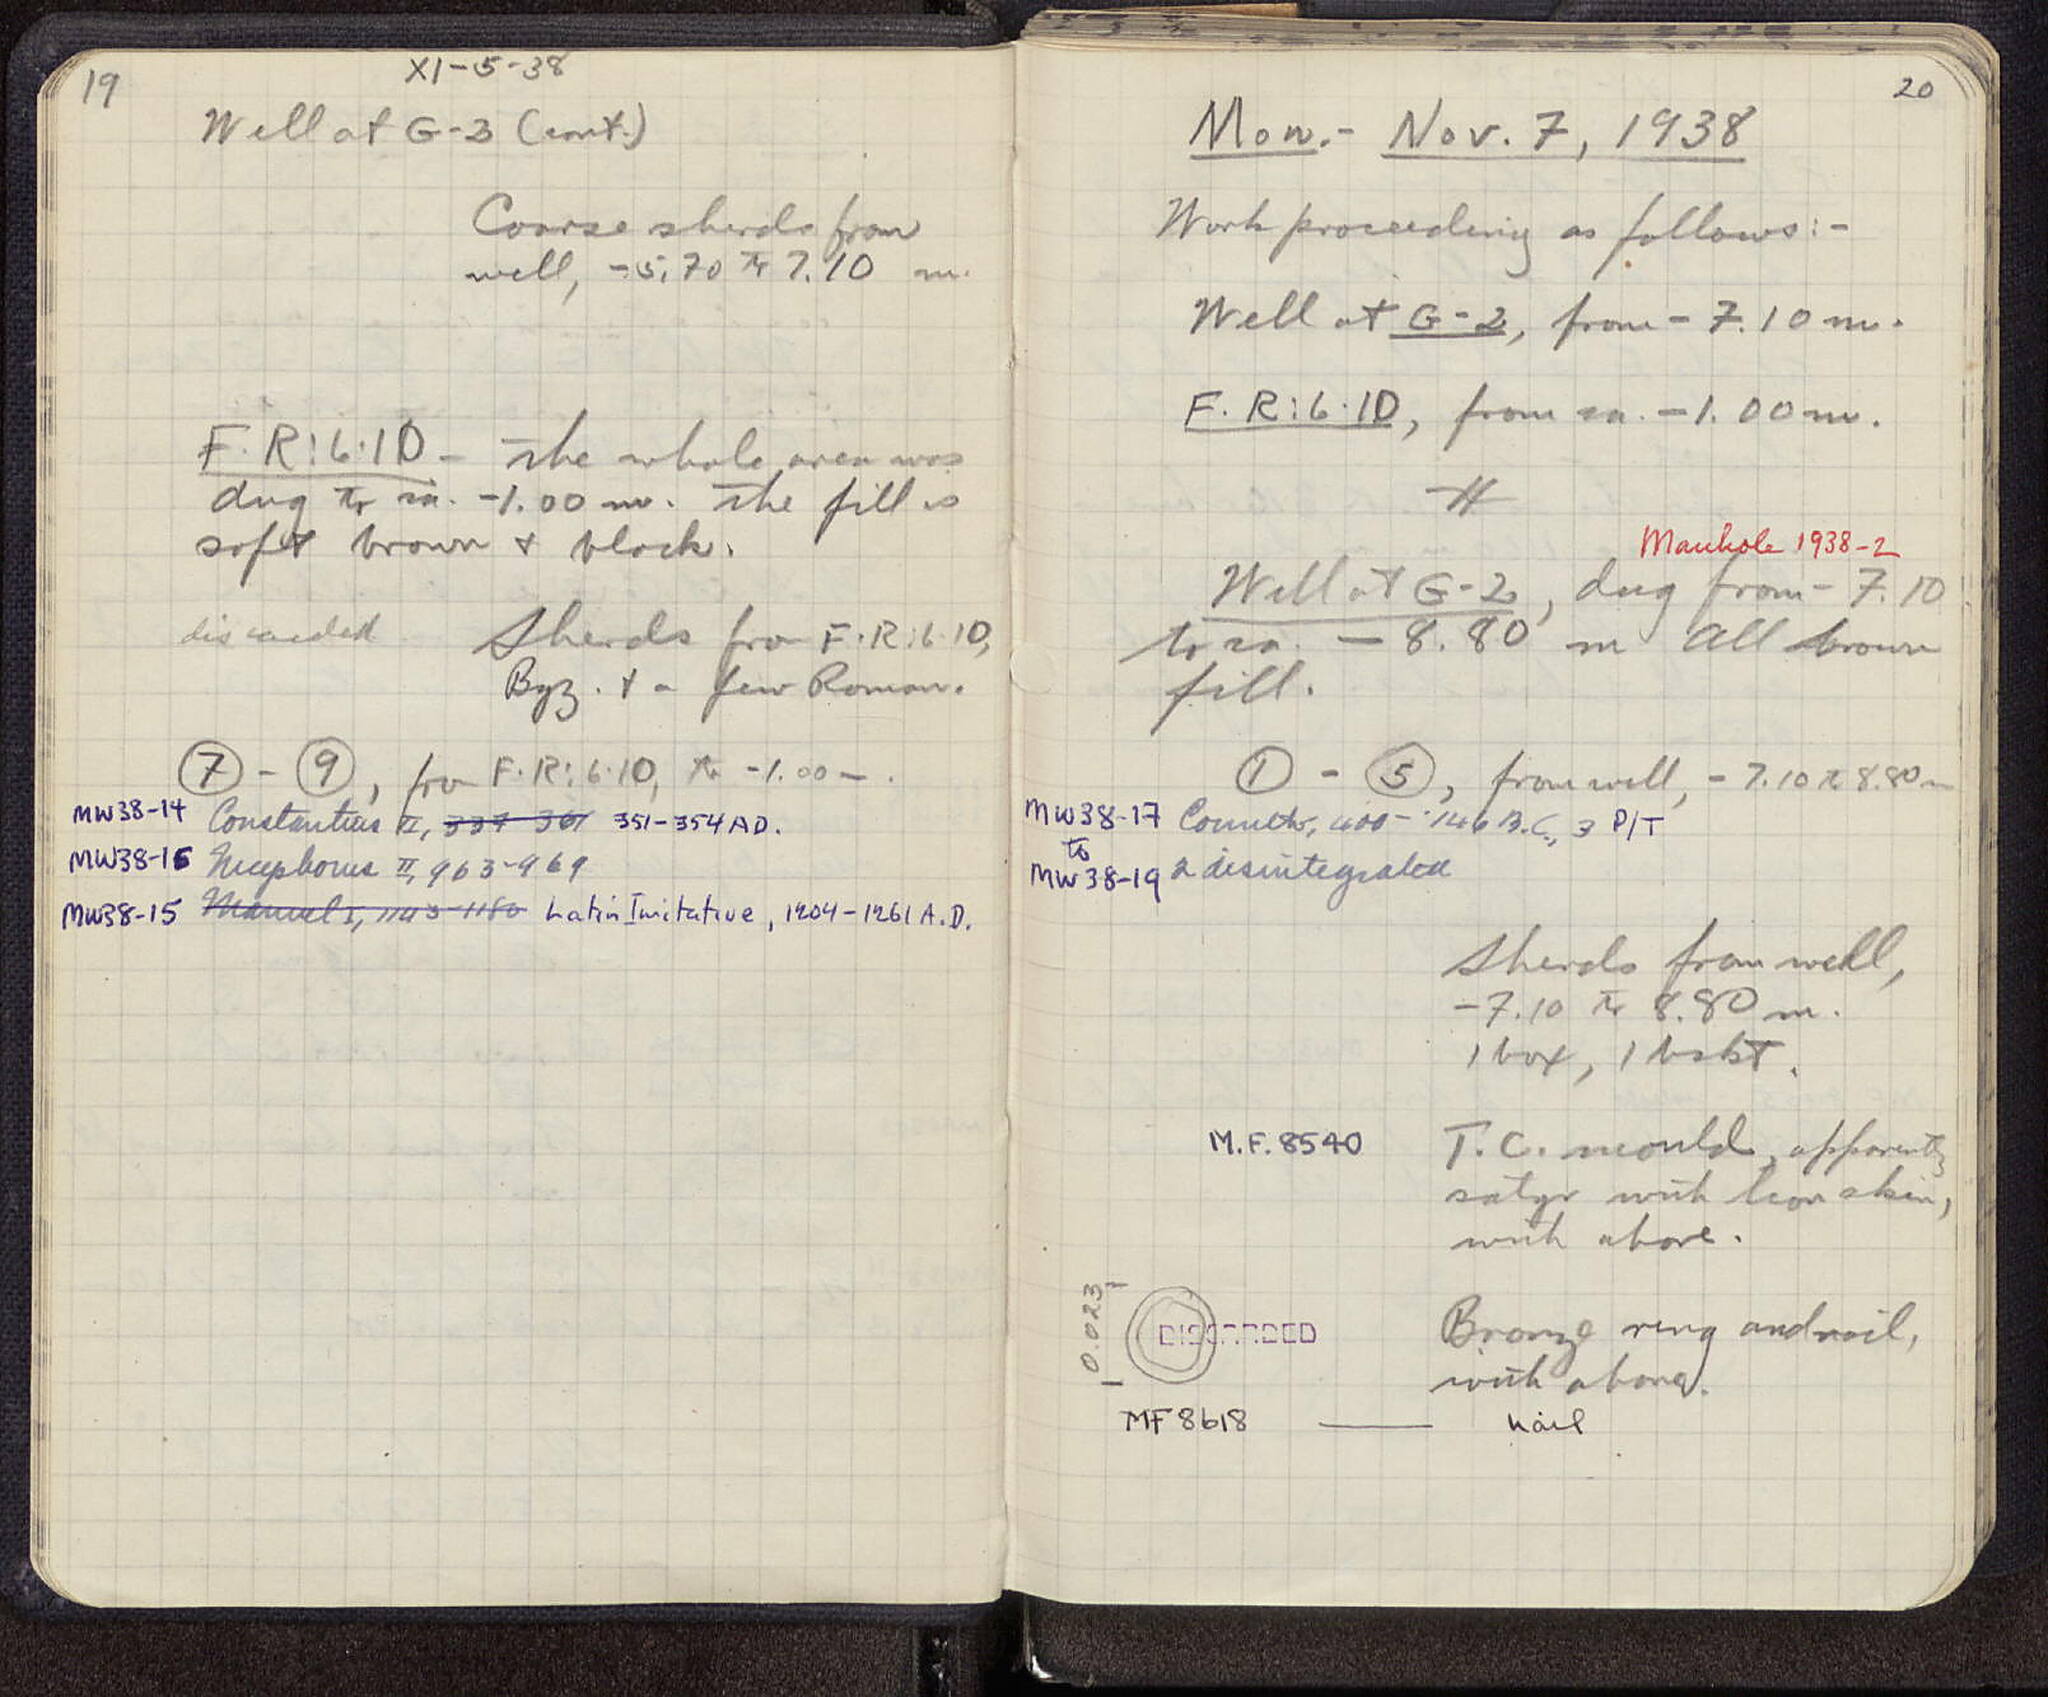 19
XI-5-38
Well at G-2 (cont.)
Coarse sherds from
well, -5.70 to 7.10 m.
F.R:6:10 - The whole area was
dug to ca. -1.00 m. The fill is
soft brown & black.
discarded
Sherds from F.R:6:10,
Byz. & a few Roman.
7 - 9, from F.R:6:10, to -1.00 m.
MW38-14 Constantius II, 337-361 351-354 AD.
MW38-16 Nicephorus II, 963-969
MW38-15 Manuel I, 1143-1180 Latin Imitative, 1204-1261 A.D.
20
Mon.- Nov. 7, 1938
Work proceeding as follows:-
Well at G-2, from -7.10 m.
F.R:6:10, from ca. -1.00 m.
Manhole 1938-2
Well at G-2, dug from -7.10
to ca. -8.80 m All brown
fill.
1 - 5, from well, -7.10 to 8.80 m
MW38-17 Corinth, 400-146 B.C., 3 P/T
to
MW38-19 2 disintegrated
Sherds from well,
-7.10 to 8.80 m.
1 box, 1 bskt.
M.F. 8540
T.C. mould, apparently
satyr with lion skin,
with above.
0.023
DISCARDED
Bronze ring and nail,
with above.
MF 8618 — nail